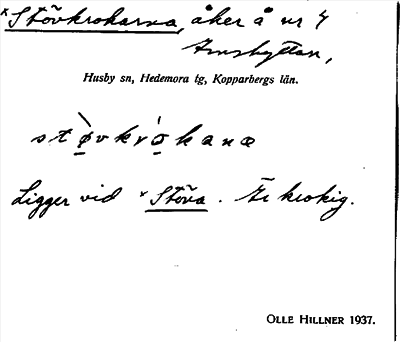 *Stövkrokarna, åker å nr 4
Husby sn, Hedemora tg, Kopparbergs län.
stø̀vkró̱kanæ
Ligger vid *Stöva. Är krokig.
OLLE HILLNER 1937.